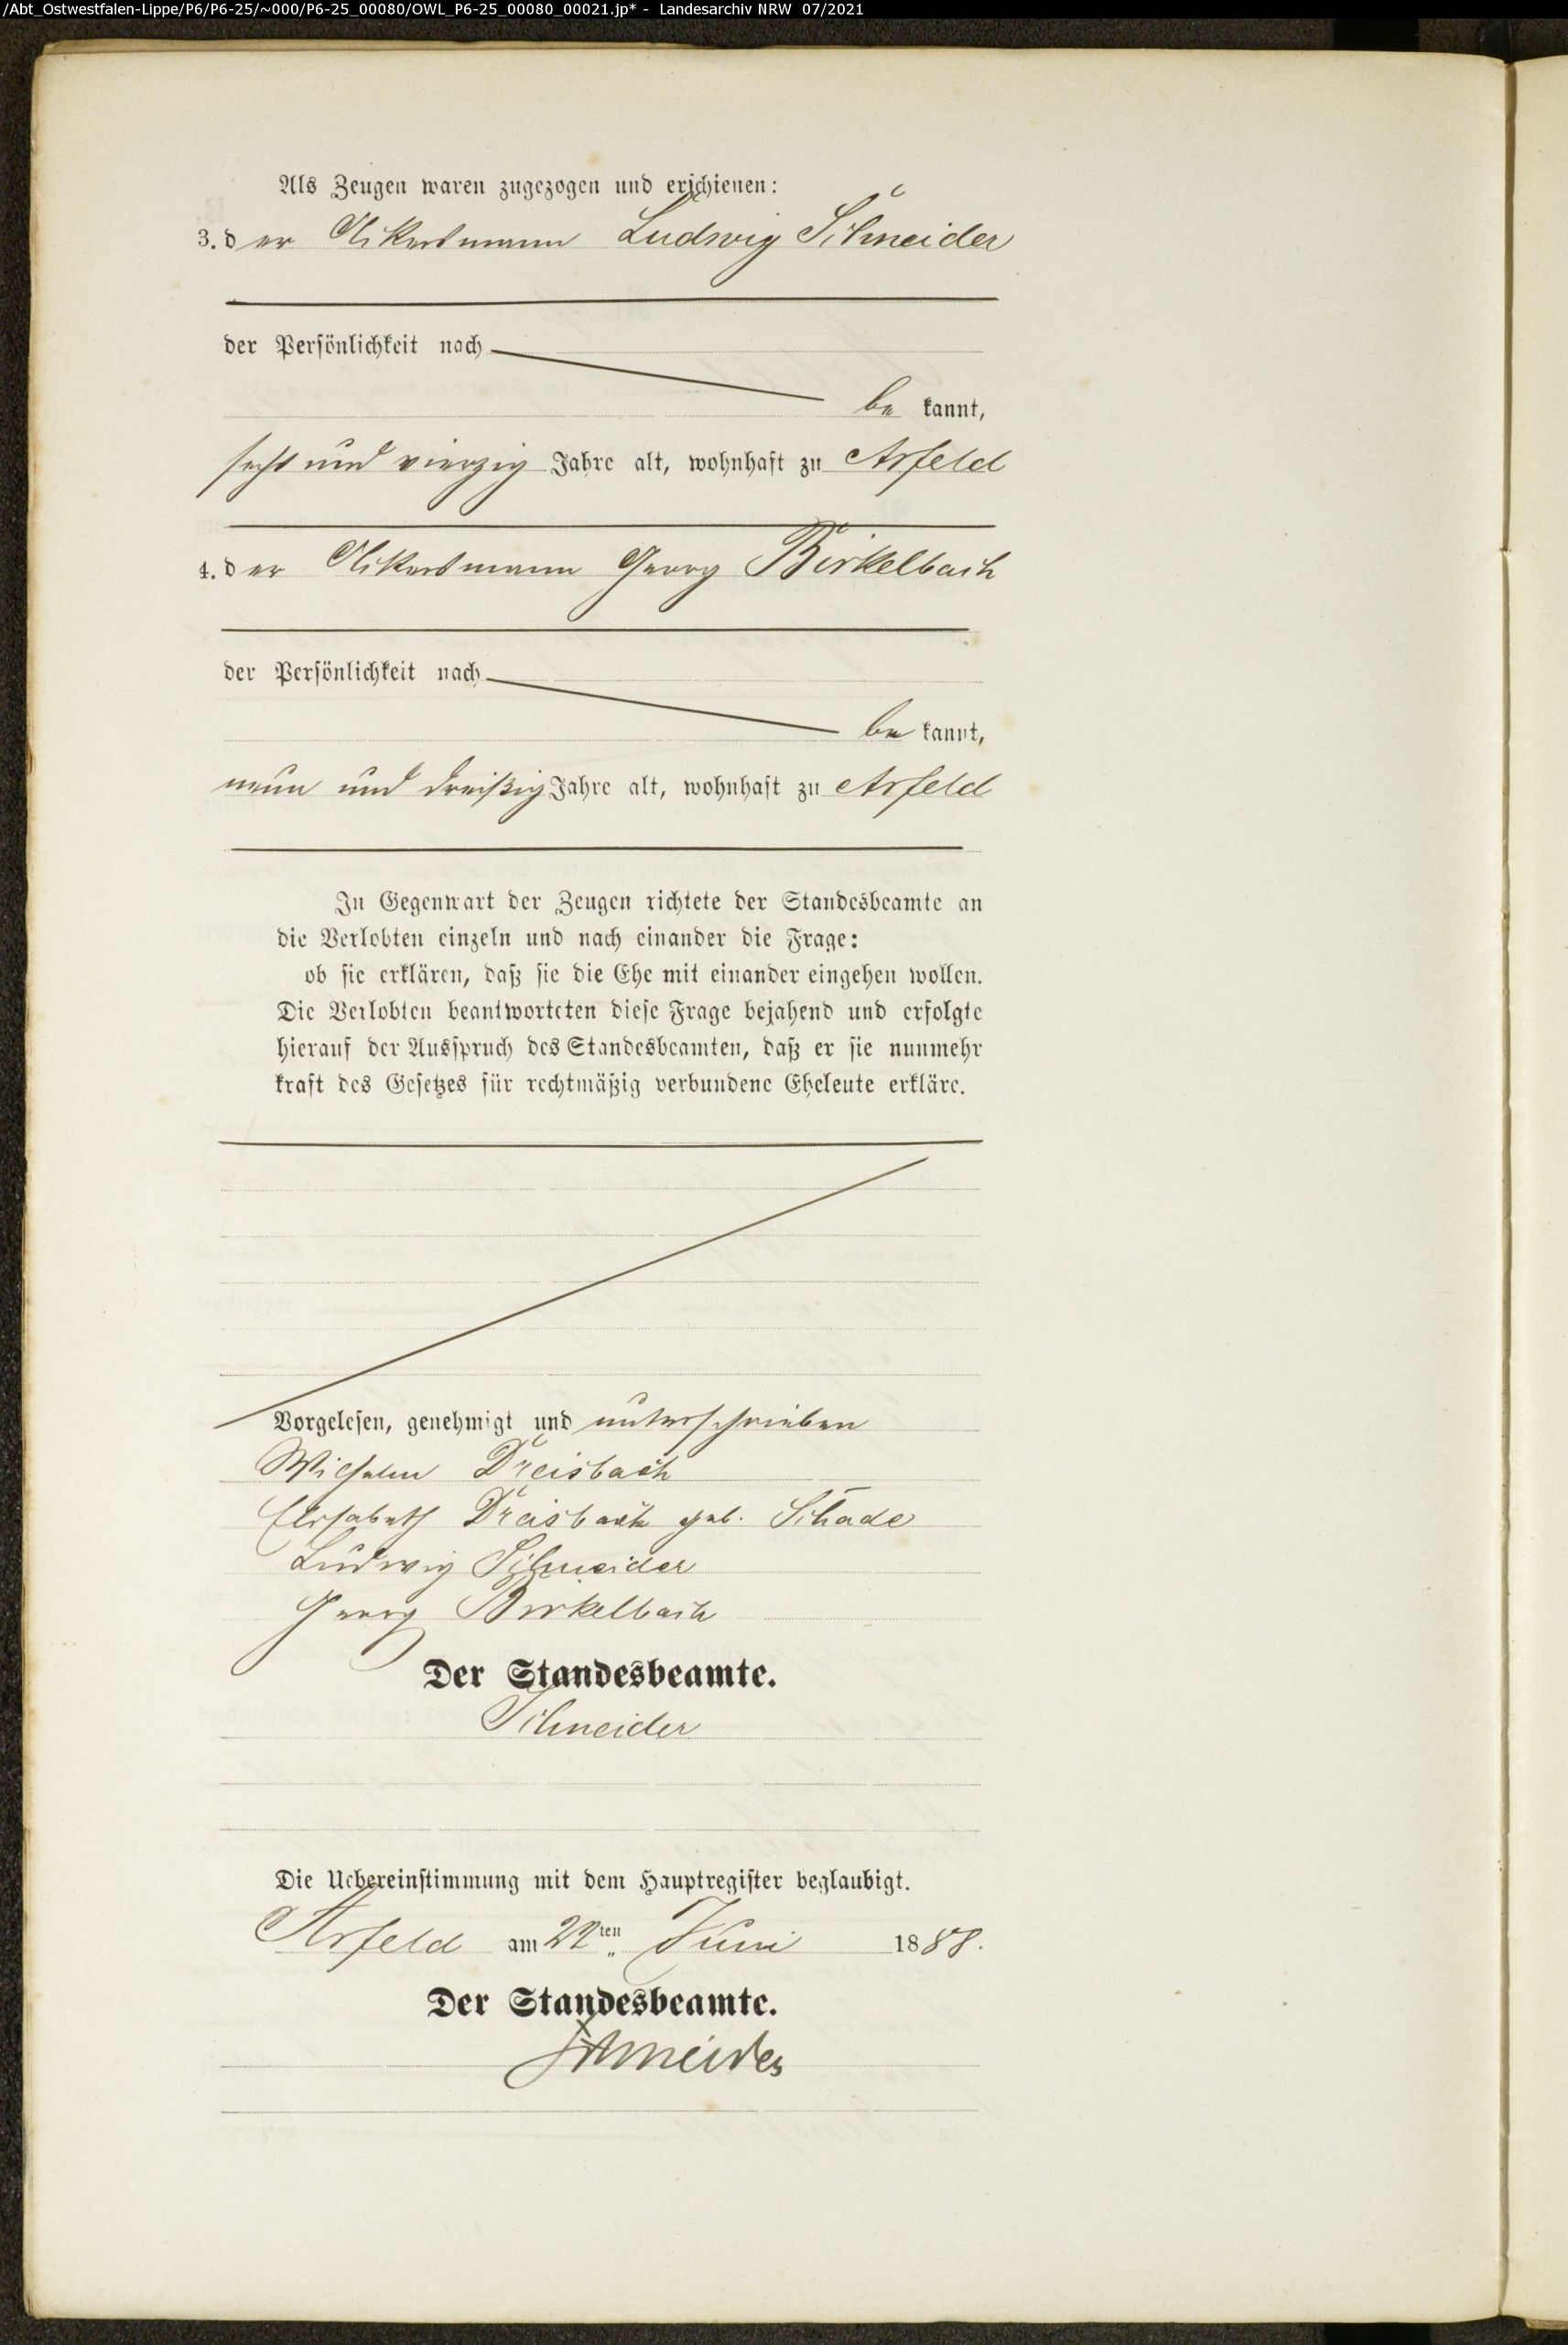 /Abt_Ostwestfalen-Lippe/P6/P6-25/~000/P6-25_00080/OWL_P6-25_00080_00021.jp* - Landesarchiv NRW 07/2021
Als Zeugen waren zugezogen und erschienen:
3. der Ackersmann Ludwig Schneider
der Persönlichkeit nach
be kannt,
sechs und vierzig Jahre alt, wohnhaft zu Arfeld
4. der Ackersmann Georg Birkelbach
der Persönlichkeit nach
be kannt,
neun und dreißig Jahre alt, wohnhaft zu Arfeld
In Gegenwart der Zeugen richtete der Standesbeamte an
die Verlobten einzeln und nach einander die Frage:
ob sie erklären, daß sie die Ehe mit einander eingehen wollen.
Die Verlobten beantworteten diese Frage bejahend und erfolgte
hierauf der Ausspruch des Standesbeamten, daß er sie nunmehr
kraft des Gesetzes für rechtmäßig verbundene Eheleute erkläre.
Vorgelesen, genehmigt und unterschrieben
Wilhelm Dreisbach
Elisabeth Dreisbach geb. Schade
Ludwig Schneider
Georg Birkelbach
Der Standesbeamte.
Schneider
Die Uebereinstimmung mit dem Hauptregister beglaubigt.
Arfeld am 22ten Juni 1888.
Der Standesbeamte.
Schneider